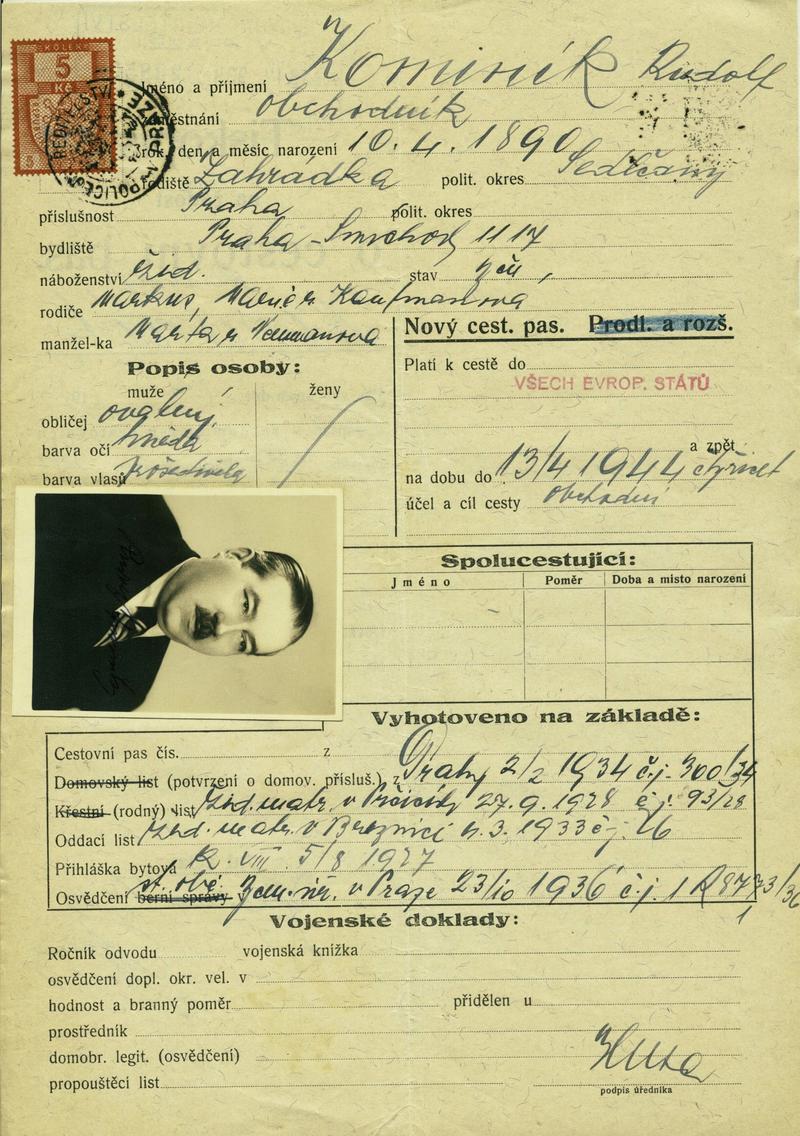 KOLEK
5
Kč
POLICEJNÍ ŘEDITELSTVÍ V PRAZE
Jméno a příjmení Kominík Rudolf
zaměstnání obchodník
rok, den a měsíc narození 10. 4. 1890
rodiště Zahrádka polit. okres Sedlčany
příslušnost Praha polit. okres
bydliště Praha-Smíchov 1117
náboženství žid. stav žen.
rodiče Markus, Marie r. Kaufmanova
manžel-ka Marta r. Neumanova
Nový cest. pas. Prodl. a rozš.
Popis osoby:
muže ženy
obličej ovalený
barva očí hnědá
barva vlasů prošedivělá
Platí k cestě do
VŠECH EVROP. STÁTŮ
a zpět
na dobu do 13/4 1944 čtyřicet
účel a cíl cesty obchodní
Spolucestující:
Jméno Poměr Doba a místo narození
Vyhotoveno na základě:
Cestovní pas čís. z
Domovský list (potvrzení o domov. přísluš.) z Prahy 2/2 1934 č.j. 300/34
Křestní (rodný) list žid. matr. v 27. 9. 1928 č.j. 93/28
Oddací list žid. matr. v Breznici 1933 č.j. 16
Přihláška bytová R. VIII 5/8 1927
Osvědčení berní správy st. obč. Zem. úř. v Praze 23/10 1936 č.j. 1 R 8773/36
1
Vojenské doklady:
Ročník odvodu vojenská knížka
osvědčení dopl. okr. vel. v
hodnost a branný poměr přidělen u
prostředník
domobr. legit. (osvědčení)
propouštěcí list
podpis úředníka